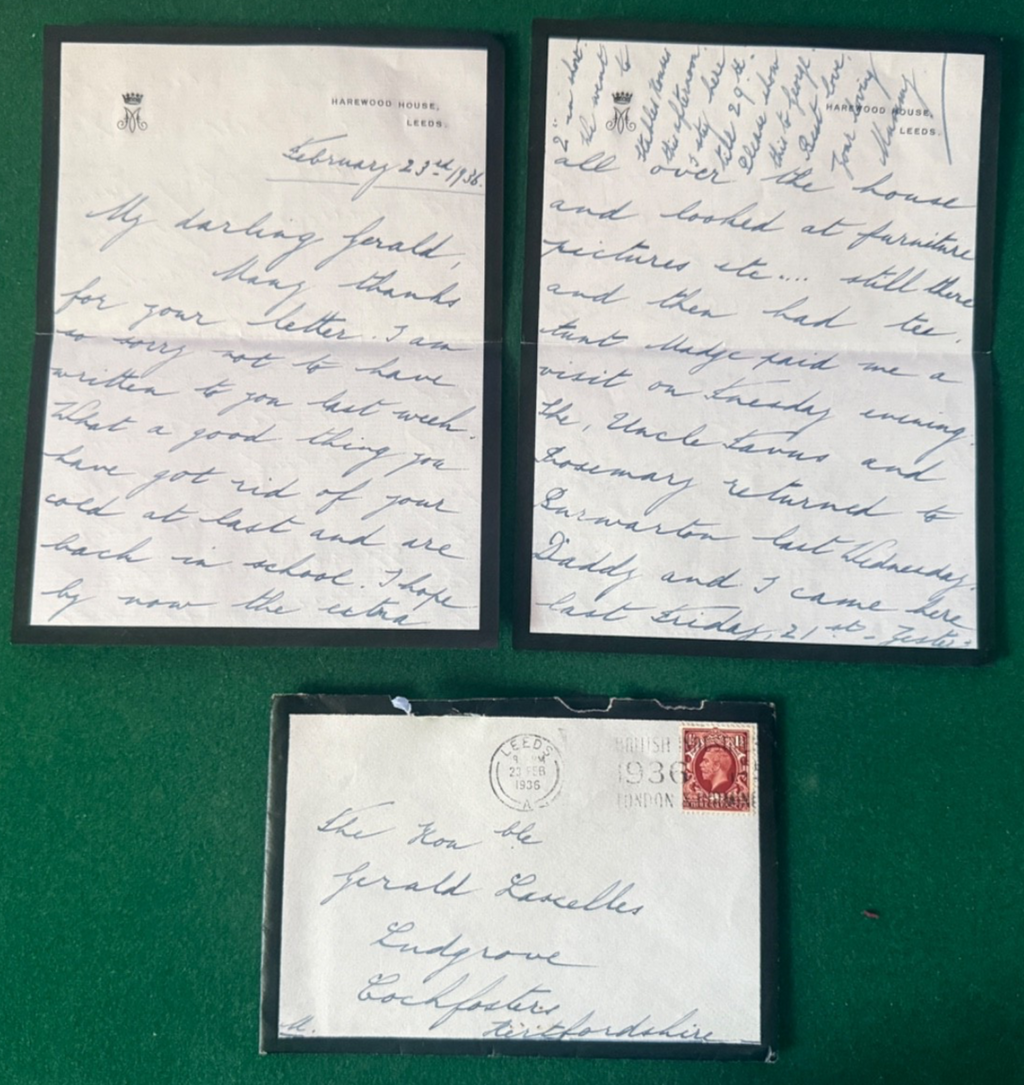 HAREWOOD HOUSE,
LEEDS.
February 23rd, 1936.
My darling Gerald,
Many thanks
for your letter. I am
so sorry not to have
written to you last week.
What a good thing you
have got rid of your
cold at last and are
back in school. I hope
by now the extra
HAREWOOD HOUSE,
LEEDS.
all over the house
and looked at furniture
pictures etc.... still there
and then had tea.
Aunt Madge paid me a
visit on Tuesday evening.
She, Uncle Lavus and
Rosemary returned to
Burwarton last Wednesday.
Daddy and I came here
last Friday, 21st.
is shot.
He went to
this afternoon.
I stay here
till 29th.
Please don
this to
Best love.
Your loving
Mummy.
LEEDS
23 FEB
1936
A
BRITISH
1936
LONDON &
The Honble
Gerald Lascelles
Ludgrove
Cockfosters
Hertfordshire
M.